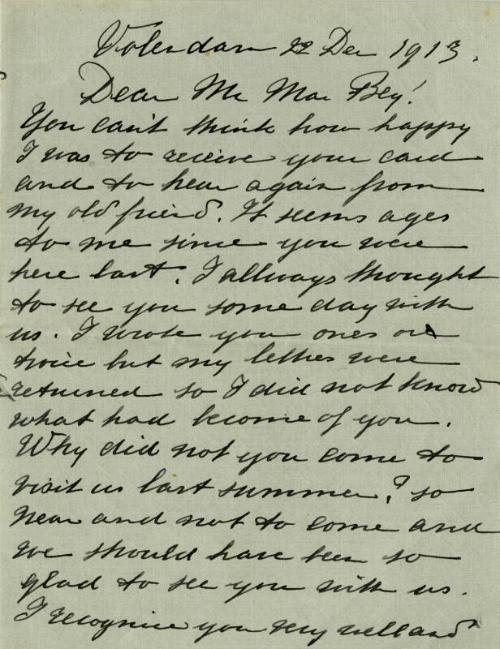 Volendam 22 Dec 1913.
Dear Mr Mac Bey!
You can't think how happy
I was to receive your card
and to hear again from
my old friend. It seems ages
to me since you were
here last. I allways thought
to see you some day with
us. I wrote you ones or
twice but my lethes were
returned so I did not know
what had become of you.
Why did not you come to
visit us last summer? so
near and not to come and
we should have been so
glad to see you with us.
I recognise you very well and